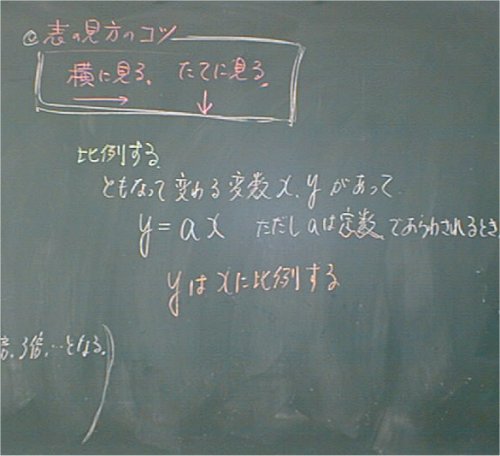 ◎表の見方のコツ
横に見る。 たてに見る。
→ ↓
比例する
ともなって変わる変数x、yがあって
y=ax ただしaは定数 であらわされるとき
yはxに比例する
倍、3倍、…となる。)